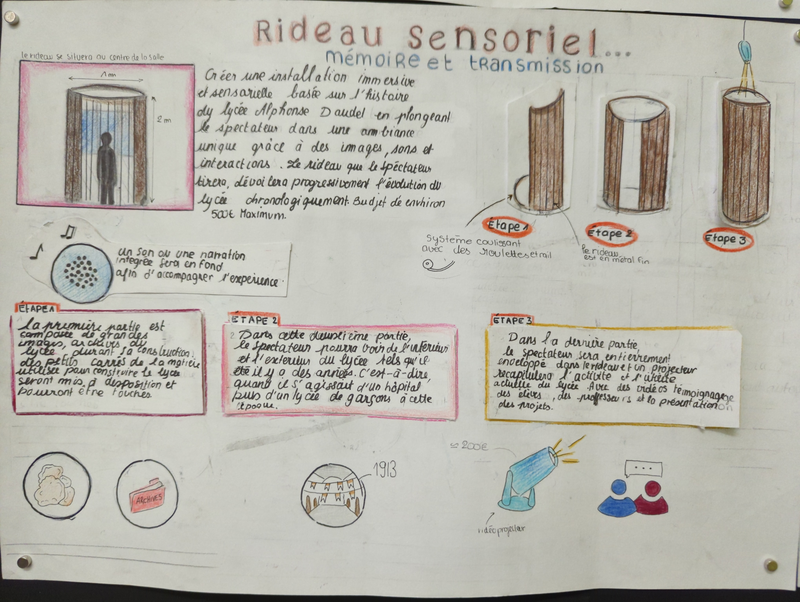 Rideau sensoriel...
mémoire et transmission
le rideau se situera au centre de la salle
1m
2m
Créer une installation immersive
et sensorielle basée sur l'histoire
du lycée Alphonse Daudet en plongeant
le spectateur dans une ambiance
unique grâce à des images, sons et
interactions. Le rideau que le spectateur
tirera, dévoilera progressivement l'évolution du
lycée chronologiquement. Budjet de environ
500€ Maximum.
Étape 1
Étape 2
Étape 3
système coulissant
avec des roulettes et rail
le rideau
est en métal fin
un son ou une narration
intégrée sera en fond
afin d'accompagner l'expérience.
ÉTAPE 1
la première partie est
composée de grandes
images, archives du
lycée durant sa construction.
des petits carrés de la matière
utilisée pour construire le lycée
seront mis à disposition et
pourront être touchés
ÉTAPE 2
Dans cette deuxième partie,
le spectateur pourra voir de l'intérieur
et l'extérieur du lycée tels qu'il
été il y a des années. c'est-à-dire,
quand il s'agissait d'un hôpital
puis d'un lycée de garçons à cette
époque.
ÉTAPE 3
Dans la dernière partie,
le spectateur sera entièrement
enveloppé dans le rideau et un projecteur
récapitulera l'activité et l'utilité
actuelle du lycée. Avec des vidéos témoignage
des élèves, des professeurs et la présentation
des projets.
ARCHIVES
1913
200€
vidéoprojecteur
...